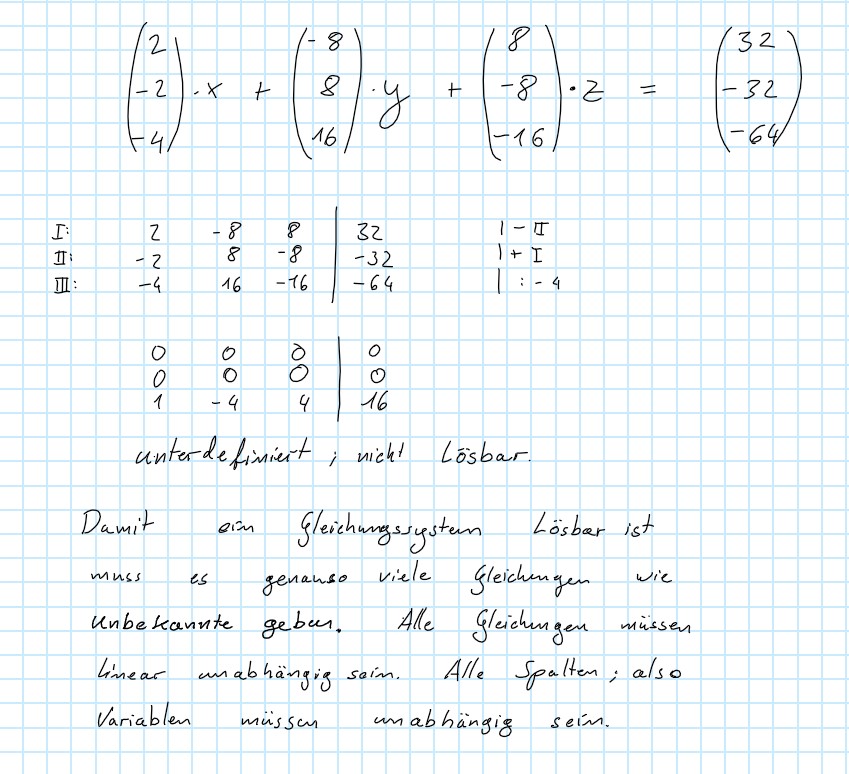 ( 2 -2 -4 ) · x + ( -8 8 16 ) · y + ( 8 -8 -16 ) · z = ( 32 -32 -64 )
I: 2 -8 8 | 32 | - II
II: -2 8 -8 | -32 | + I
III: -4 16 -16 | -64 | : -4
0 0 0 | 0
0 0 0 | 0
1 -4 4 | 16
unterdefiniert ; nicht Lösbar.
Damit ein Gleichungssystem Lösbar ist
muss es genauso viele Gleichungen wie
Unbekannte geben. Alle Gleichungen müssen
linear unabhängig sein. Alle Spalten ; also
Variablen müssen unabhängig sein.